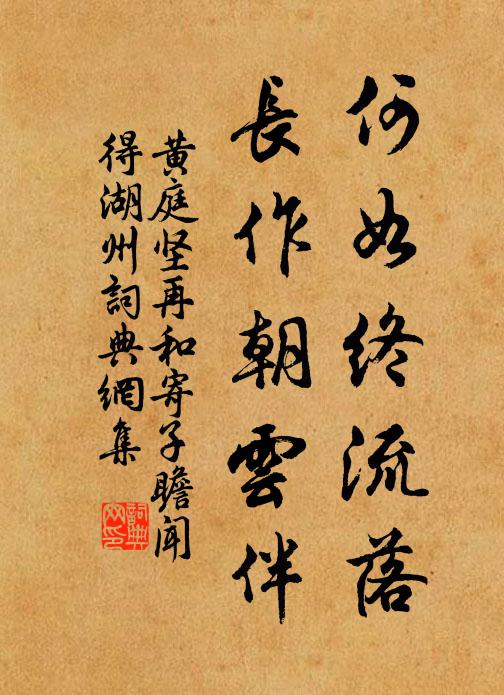 何如终流落
長作朝雲伴
黄庭坚再和寄子瞻闻
得湖州詞典網集
詞典
网印